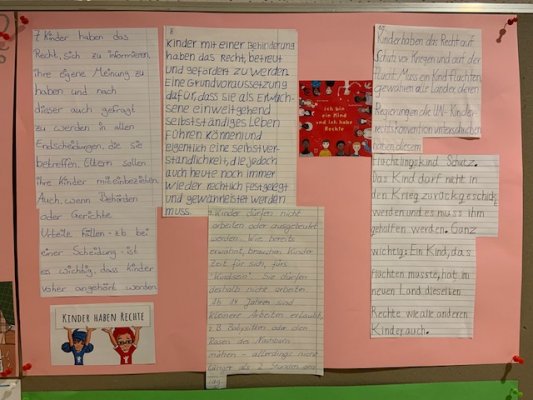 7 Kinder haben das
Recht, sich zu informieren,
ihre eigene Meinung zu
haben und nach
dieser auch gefragt
zu werden in allen
Entscheidungen, die sie
betreffen. Eltern sollen
ihre Kinder miteinbeziehen.
Auch, wenn Behörden
oder Gerichte
Urteile fällen - zb bei
einer Scheidung ist
es wichtig, dass Kinder
vorher angehört werden
KINDER HABEN RECHTE
8
Kinder mit einer Behinderung
haben das Recht, betreut
und gefördert zu werden.
Eine Grundvoraussetzung
dafür, dass sie als Erwach-
sene ein weitgehend
selbstständiges Leben
führen können und
eigentlich eine selbstver-
ständlichkeit, die jedoch
auch heute noch immer
wieder rechtlich festgelegt
und gewährleistet werden
muss.
9 Kinder dürfen nicht
arbeiten oder ausgebeutet
werden. Wie bereits
erwähnt, brauchen Kinder
Zeit für sich, fürs
"Kindsein". Sie dürfen
deshalb nicht arbeiten.
Ab 14 Jahren sind
kleinere Arbeiten erlaubt,
z.B Babysitten oder den
Rasen des Nachbarn
mähen - allerdings nicht
länger als 2 Stunden am
Tag.
Ich bin
ein Kind
und ich habe
Rechte
Kinder haben das Recht auf
Schutz vor Kriegen und auf der
Flucht. Muss ein Kind flüchten,
gewähren alle Länder, deren
Regierungen die UN-Kinder-
rechtskonvention unterschrieben
haben, diesem
Flüchtlingskind Schutz.
Das Kind darf nicht in
den Krieg zurückgeschickt
werden und es muss ihm
geholfen werden. Ganz
wichtig: Ein Kind, das
flüchten musste, hat im
neuen Land dieselben
Rechte wie alle anderen
Kinder auch.